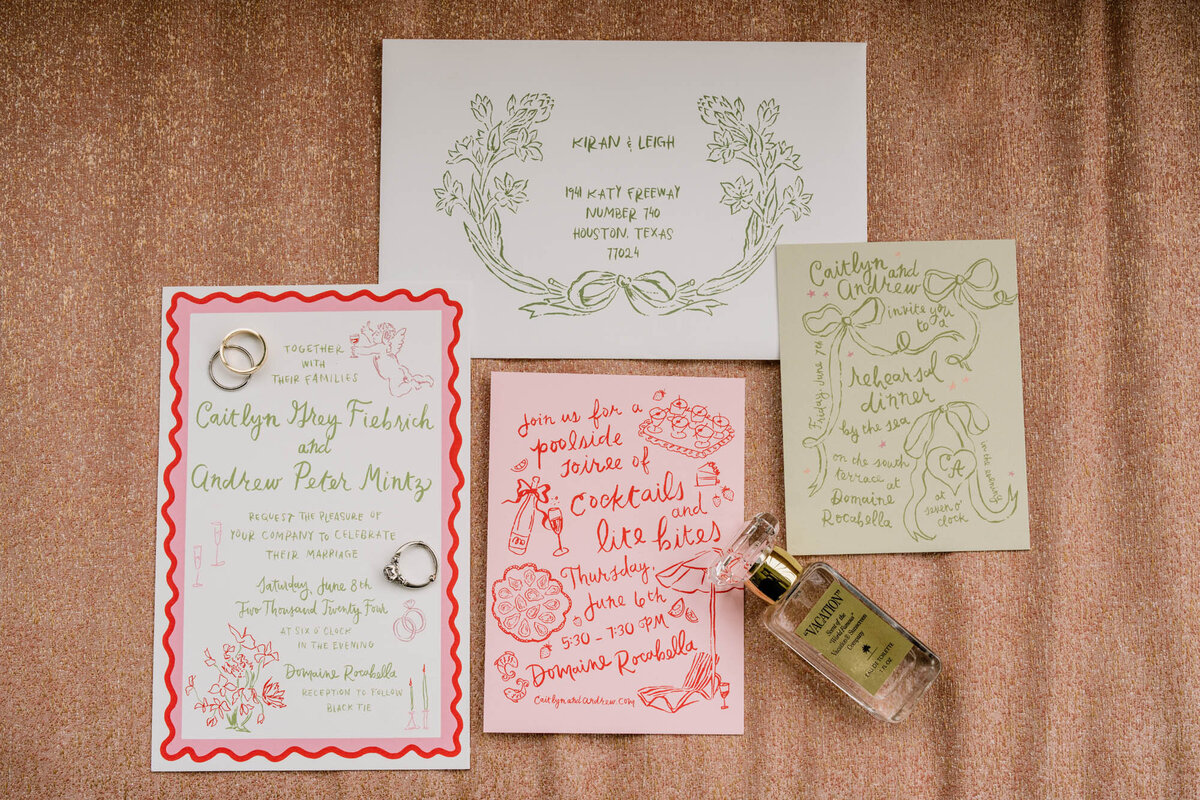 KIRAN & LEIGH
1941 KATY FREEWAY
NUMBER 740
HOUSTON, TEXAS
77024
TOGETHER
WITH
THEIR FAMILIES
Caitlyn Grey Fiebrich
and
Andrew Peter Mintz
REQUEST THE PLEASURE OF
YOUR COMPANY TO CELEBRATE
THEIR MARRIAGE
Saturday, June 8th
Two Thousand Twenty Four
AT SIX O'CLOCK
IN THE EVENING
Domaine Rocabella
RECEPTION TO FOLLOW
BLACK TIE
Join us for a
poolside
soiree of
Cocktails
and
lite bites
Thursday,
June 6th
5:30 - 7:30 PM
Domaine Rocabella
Caitlynandandrew.com
Caitlyn and
Andrew
invite you
to a
rehearsal
dinner
Friday, June 7th
by the sea
on the south
terrace at
Domaine
Rocabella
CA
at
seven o'
clock
in the evening
"VACATION"
Scent of the
"World Famous"
Vacation® Sunscreen
Company
EAU DE TOILETTE
1 FL OZ